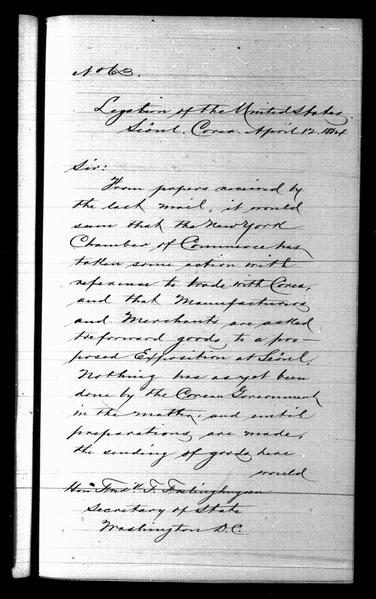 No 63.
Legation of the United States.
Séoul. Corea. April 12. 1884
Sir:
From papers received by
the last mail, it would
seem that the New York
Chamber of Commerce has
taken some action with
reference to trade with Corea,
and that Manufacturers
and Merchants are asked
to forward goods, to a pro-
posed Exposition at Séoul.
Nothing has as yet been
done by the Corean Government
in the matter, and until
preparations are made,
the sending of goods here
would
Hon. Fredk. T. Frelinghuysen
Secretary of State
Washington D.C.